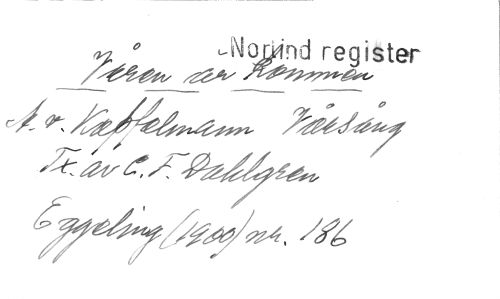 Norlind register
Våren är kommen
A. v. Koppelmann Vårsång
Tx. av C. F. Dahlgren
Eggeling (1900) nr. 186